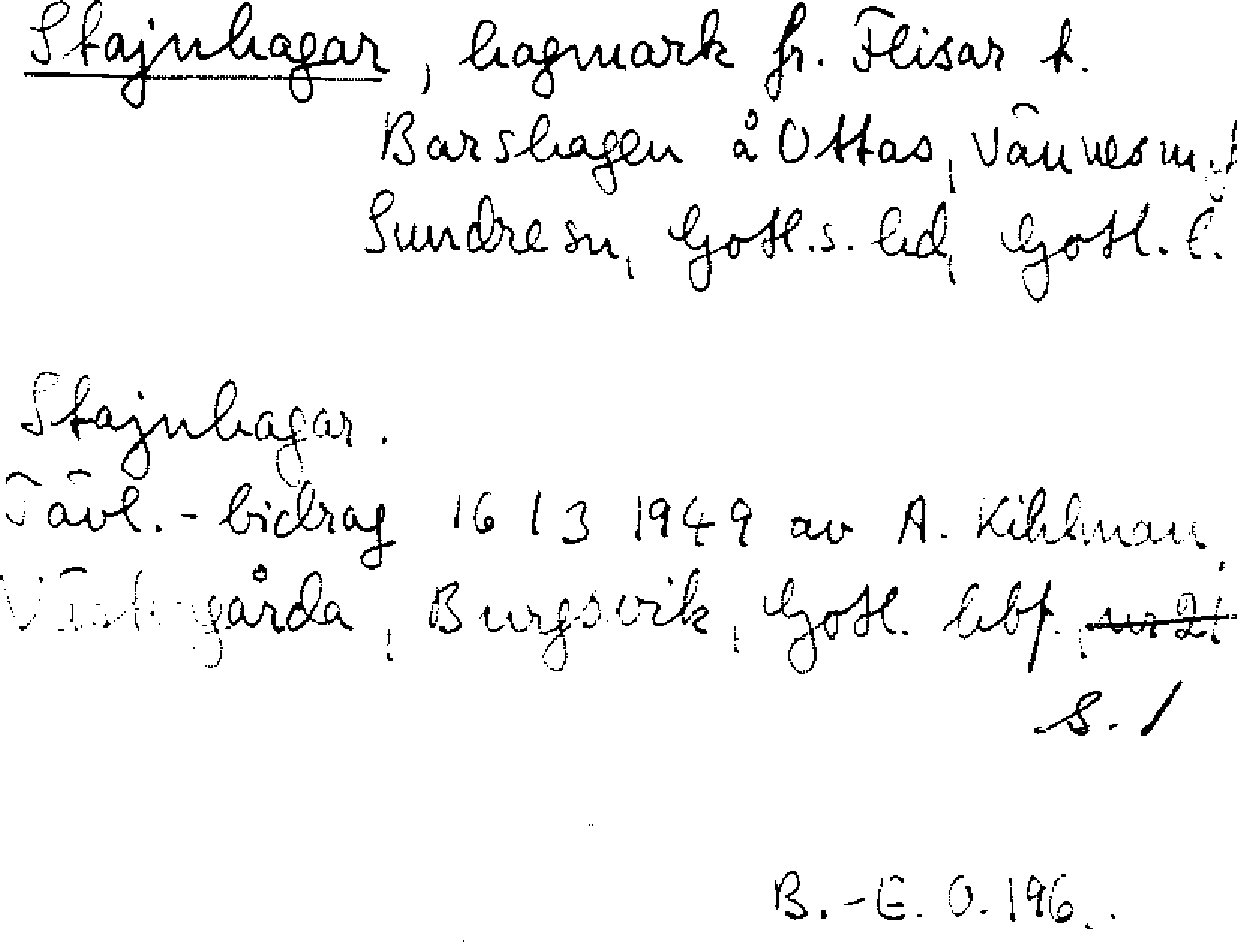 Stajnhagar, hagmark fr. Flisar t.
Barshagen å Ottas, Vännes m.fl
Sundre sn, Gotl.s. hd, Gotl. l.
Stajnhagar.
Tävl.-bidrag 16/3 1949 av A. Kihlman,
gårda, Burgsvik, Gotl. hbf.,
s. 1
B.-E. O. 196..